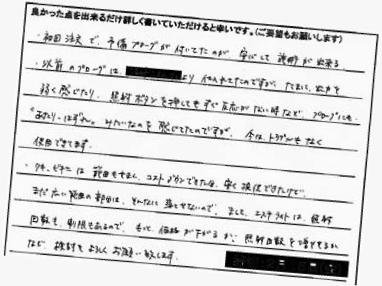 良かった点を出来るだけ詳しく書いていただけると幸いです。(ご要望もお願いします)
・初回注文で、予備プローブが付いてたのが、安心して施術が出来る。
・以前のプローブは、より仕入れてたのですが、たまに、出力を
弱く感じたり、照射ボタンを押してもすぐ反応がない時など、プローブにも
"あたり・はずれ"みたいなのを感じてたのですが、今は、トラブルもなく
使用できてます。
・ワキ、ビキニは範囲もせまく、コストダウンできた分、安く提供できたけど、
まだ広い範囲の部位は、そんなに落とせないので、まして、エステライトは、照射
回数も、制限もあるので、もっと価格が下がるか、照射回数を増やせるか
など、検討をよろしくお願い致します。